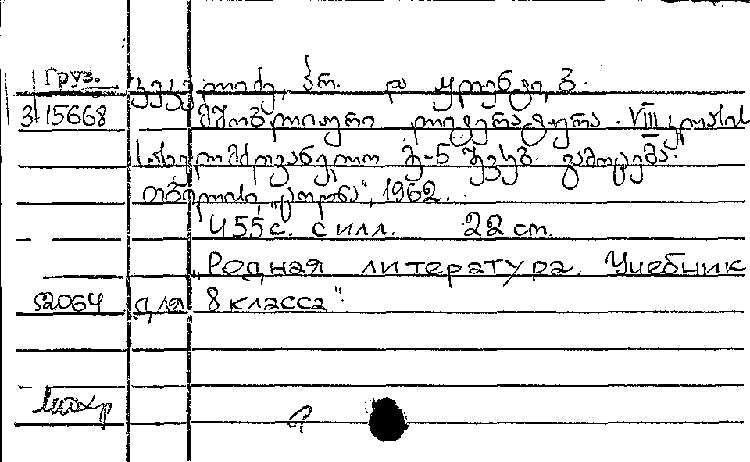 Груз.
კეკელიძე, კორ. და ურუშაძე, ვ.
3 15668 მშობლიური ლიტერატურა. VIII კლასის
სახელმძღვანელო მე-5 შევსებ. გამოცემა.
თბილისი, "ცოდნა", 1962.
455 с. с илл. 22 см.
"Родная литература. Учебник
52064 для 8 класса".